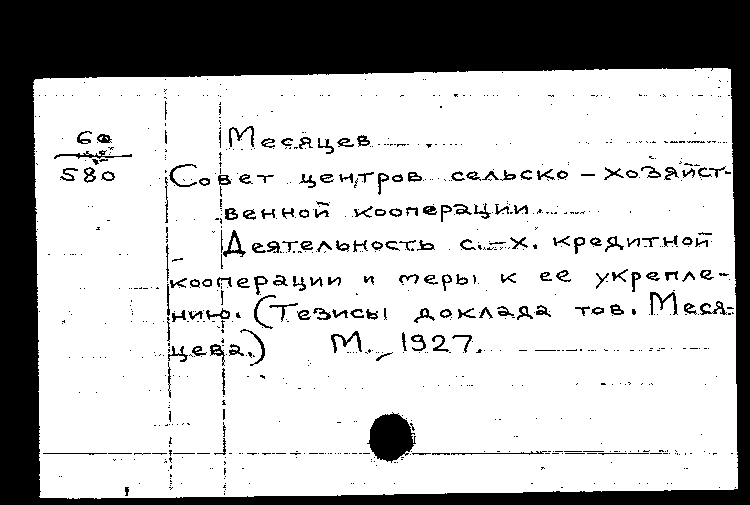 60
580
Месяцев
Совет центров сельско-хозяйст-
венной кооперации.
Деятельность с.-х. кредитной
кооперации и меры к ее укрепле-
нию. (Тезисы доклада тов. Меся-
цева.) М., 1927.